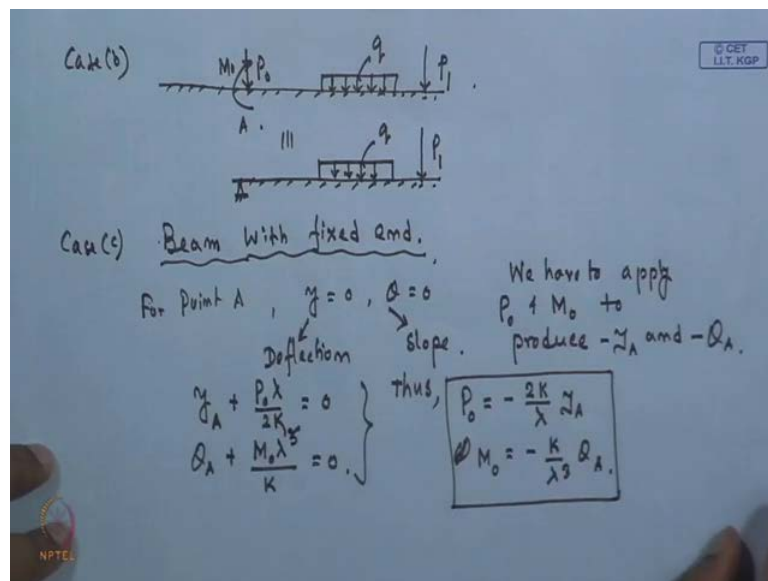 Case(b)
M₀ P₀ q P₁
A.
|||
q P₁
A
Case(c) Beam with fixed end.
For Point A, y = 0, θ = 0
Deflection Slope.
We have to apply
P₀ & M₀ to
produce -y_A and -θ_A.
y_A + P₀λ/2K = 0
θ_A + M₀λ³/K = 0.
Thus,
P₀ = - 2K/λ y_A
M₀ = - K/λ³ θ_A.
© CET
I.I.T. KGP
NPTEL